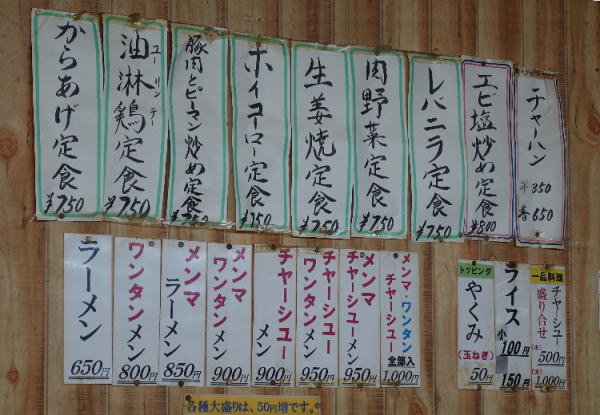 からあげ定食 ¥750
油淋鶏定食 ¥750
ユーリンチー
豚肉とピーマン炒め定食 ¥750
ホイコーロー定食 ¥750
生姜焼定食 ¥750
肉野菜定食 ¥750
レバニラ定食 ¥750
エビ塩炒め定食 ¥800
チャーハン
半 350
普 650
ラーメン 650円
ワンタンメン 800円
メンマラーメン 850円
メンマワンタンメン 900円
チャーシューメン 900円
チャーシューワンタンメン 950円
メンマチャーシューメン 950円
メンマ・ワンタンチャーシュー全部入 1,000円
トッピング
やくみ
(玉ねぎ)
50円
ライス
小 100円
150円
一品料理
チャーシュー盛り合せ
(小) 500円
(大) 1,000円
各種大盛りは、50円増です。